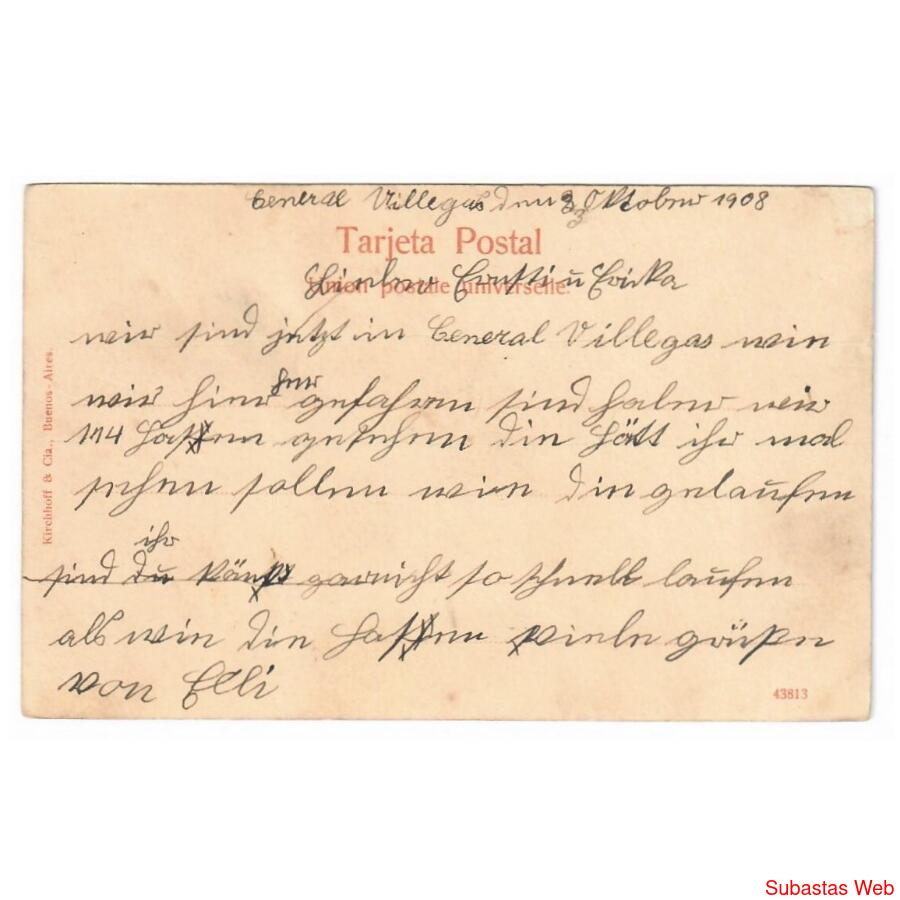 General Villegas den 3 Oktober 1908
Tarjeta Postal
Union postale universelle.
Lieber Ernsti u Ericka
wir sind jetzt in General Villegas wie
wir hier her gefahren sind haben wir
114 Hasen gesehen die Hätt ihr mal
sehen sollen wie die gelaufen
sind ihr könt garnicht so schnell laufen
als wie die Hasen viele grüße
von Elli
Kirchhoff & Cía., Buenos-Aires.
43813
Subastas Web